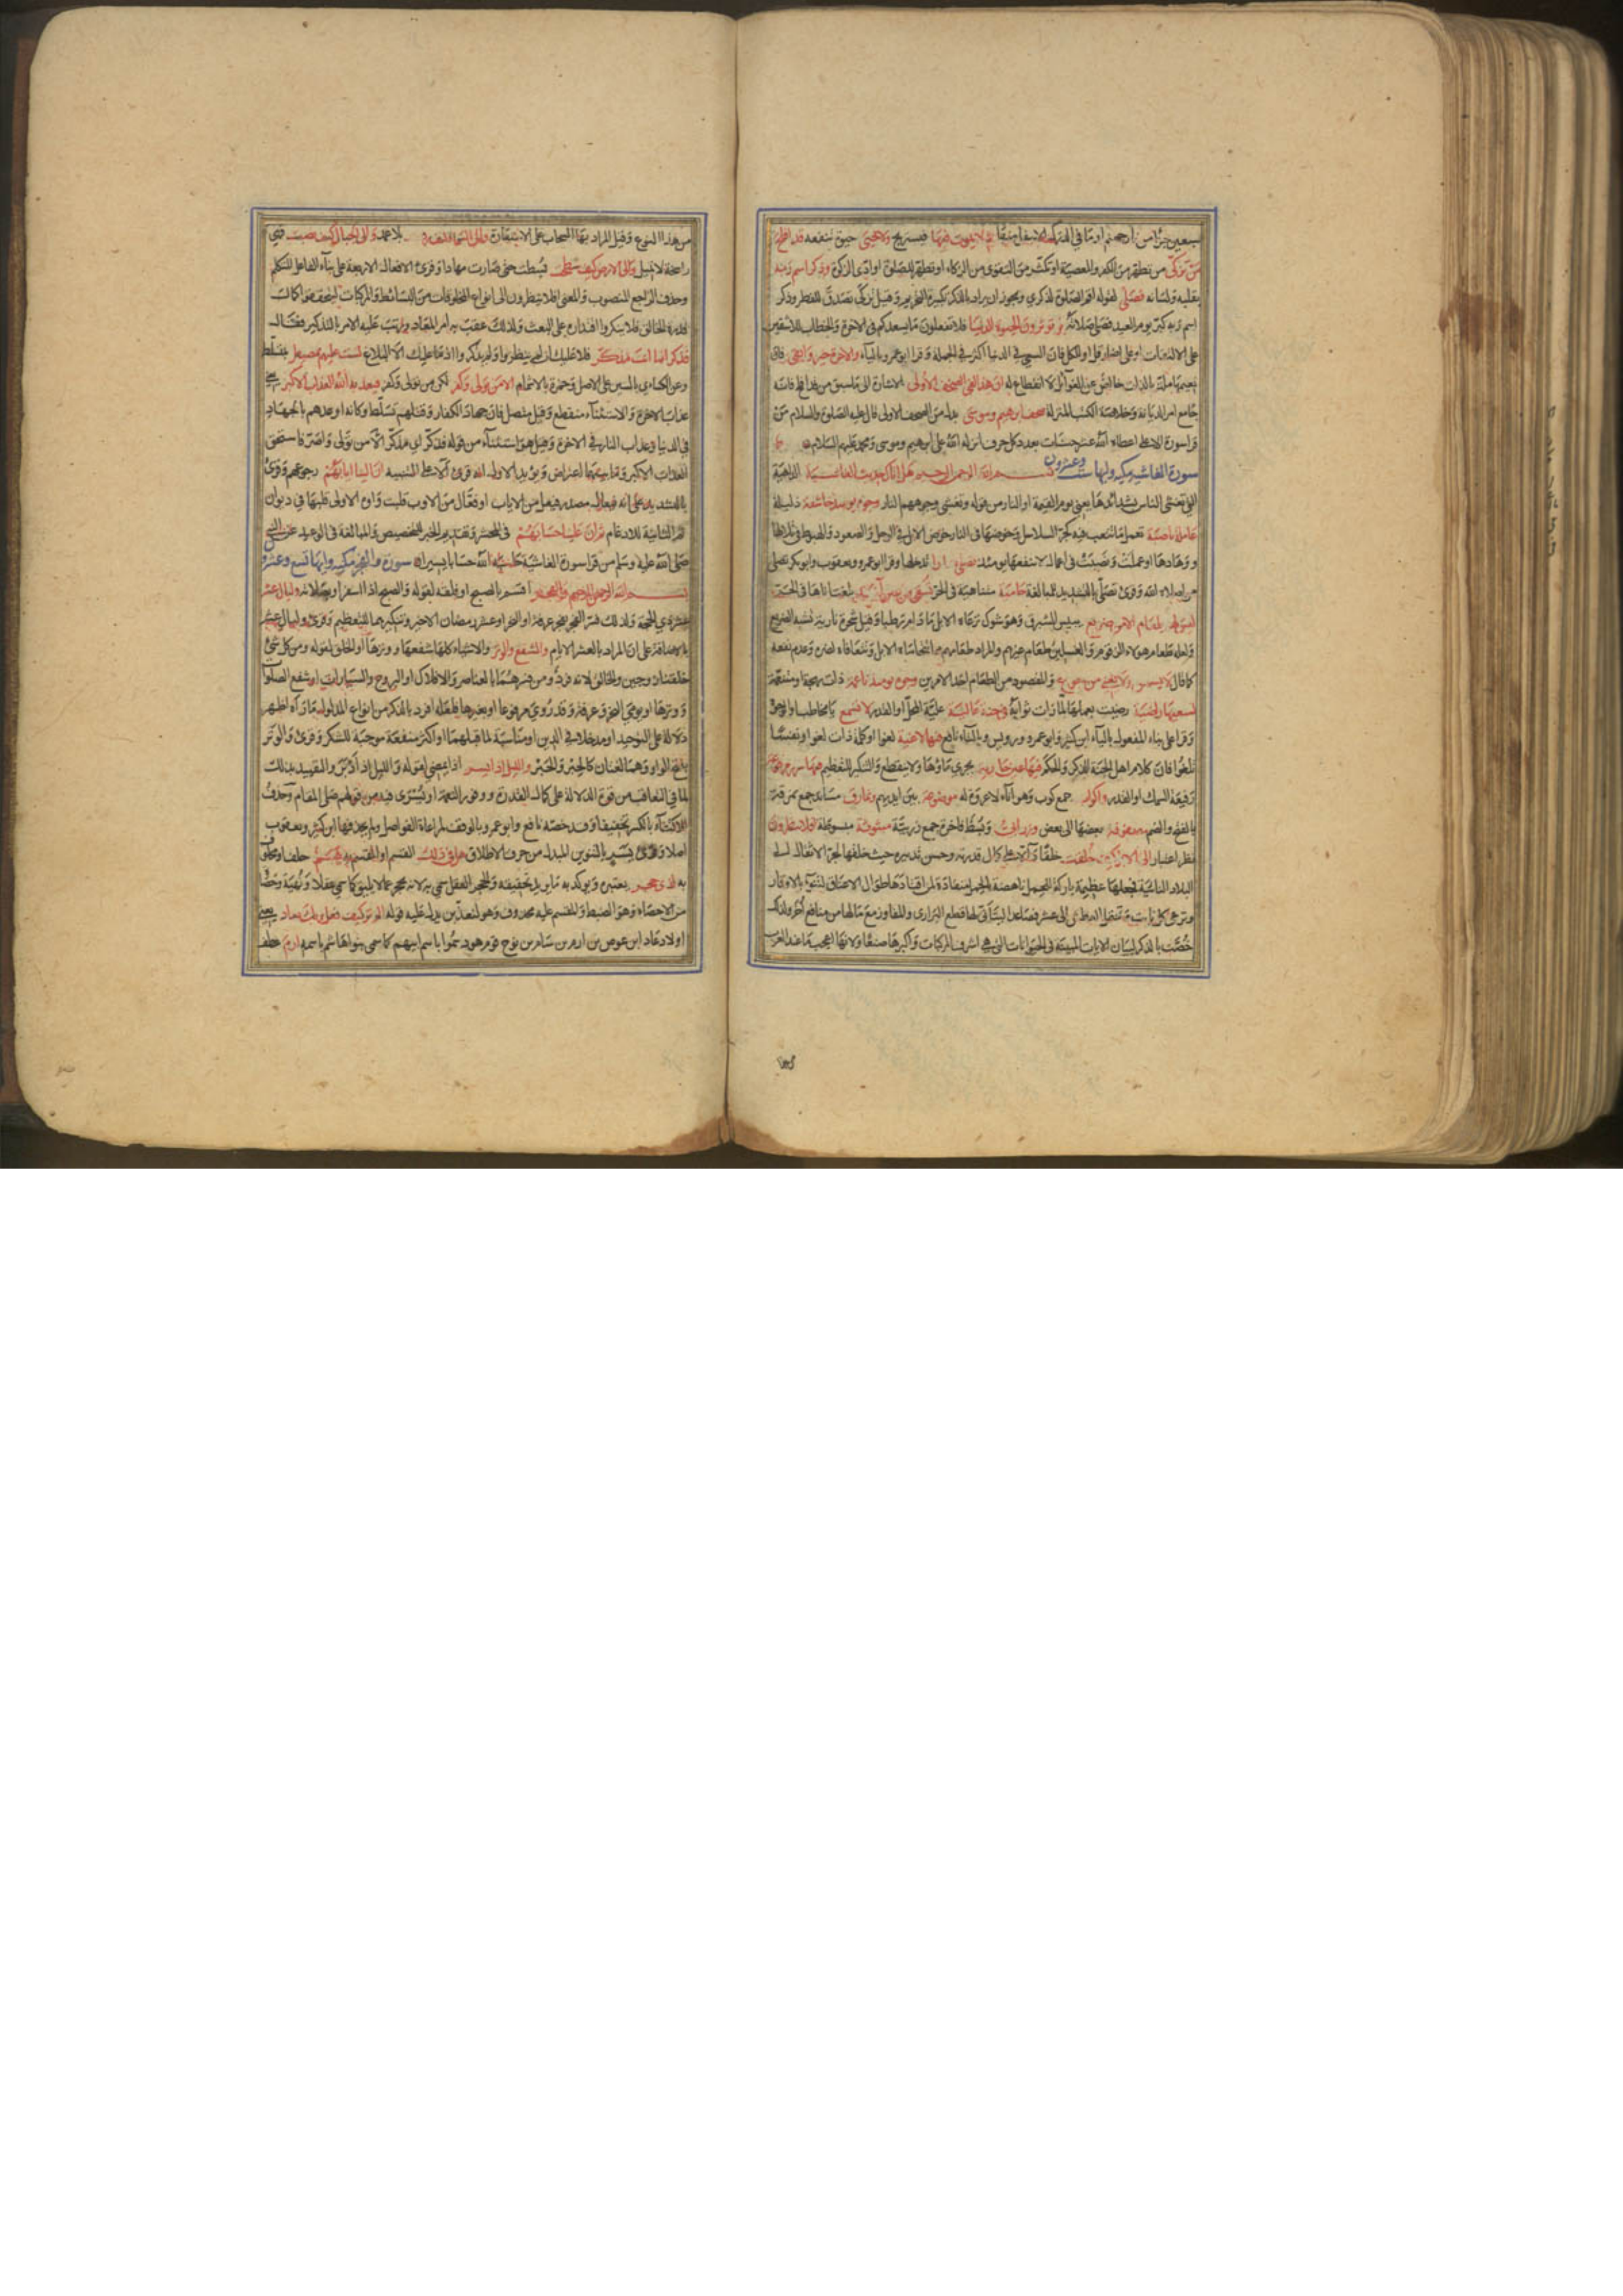 سبعين جزءا من نار جهنم او ما في الدرك الاسفل منها ثم لا يموت فيها فيستريح ولا يحيى حيوة تنفعه قد افلح
من تزكى من تطهر من الكفر والمعصية او تكثر من التقوى من الزكاء او تطهر للصلوة او ادى الزكوة وذكر اسم ربه
بقلبه ولسانه فصلى لقوله اقم الصلوة لذكري ويجوز ان يراد بالذكر تكبيرة التحريم وقيل تزكى تصدق للفطر وذكر
اسم ربه كبر يوم العيد فصلى صلاته بل تؤثرون الحيوة الدنيا فلا تفعلون ما يسعدكم في الاخرة والخطاب للاشقين
على الالتفات او على اضمار قل او للكل فان السعي في الدنيا اكثر في الجملة وقرا ابو عمرو بالياء والاخرة خير وابقى فان
نعيمها ملذ بالذات خالص عن الغوائل لا انقطاع له ان هذا لفي الصحف الاولى الاشارة الى ما سبق من قد افلح فانه
جامع امر الديانة وخلاصة الكتب المنزلة صحف ابرهيم وموسى بدل من الصحف الاولى قال عليه الصلوة والسلام من
قرا سورة الاعلى اعطاه الله عشر حسنات بعدد كل حرف انزله الله على ابرهيم وموسى ومحمد عليهم السلام
سورة الغاشية مكية وايها ست وعشرون بسم الله الرحمن الرحيم هل اتاك حديث الغاشية الداهية
التي تغشى الناس بشدائدها يعني يوم القيمة او النار من قوله وتغشى وجوههم النار وجوه يومئذ خاشعة ذليلة
عاملة ناصبة تعمل ما تتعب فيه كجر السلاسل وخوضها في النار خوض الابل في الوحل والصعود والهبوط في تلالها
ووهادها او عملت ونصبت في اعمال لا تنفعها يومئذ تصلى نارا تدخلها وقرا ابو عمرو ويعقوب وابو بكر تصلى
من اصلاه الله وقرئ تصلى بالتشديد للمبالغة حامية متناهية في الحر تسقى من عين آنية بلغت اناها في الحر
ليس لهم طعام الا من ضريع يبيس الشبرق وهو شوك ترعاه الابل ما دام رطبا وقيل شجرة نارية تشبه الضريع
ولعله طعام هؤلاء الزقوم والغسلين طعام غيرهم والمراد طعامهم ما تتحاماه الابل وتتعافاه لضره وعدم نفعه
كما قال لا يسمن ولا يغني من جوع والمقصود من الطعام احد الامرين وجوه يومئذ ناعمة ذات بهجة او متنعمة
لسعيها راضية رضيت بعملها لما رات ثوابه في جنة عالية علية المحل او القدر لا تسمع يا مخاطب او الوجوه
وقرا على بناء المفعول بالياء ابن كثير وابو عمرو ورويس وبالتاء نافع فيها لاغية لغوا او كلمة ذات لغو او نفسا
تلغو فان كلام اهل الجنة الذكر والحكم فيها عين جارية يجري ماؤها ولا ينقطع والتنكير للتعظيم فيها سرر مرفوعة
رفيعة السمك او القدر واكواب جمع كوب وهو اناء لا عروة له موضوعة بين ايديهم ونمارق مساند جمع نمرقة
بالفتح والضم مصفوفة بعضها الى بعض وزرابي وبسط فاخرة جمع زربية مبثوثة مبسوطة افلا ينظرون
نظر اعتبار الى الابل كيف خلقت خلقا دالا على كمال قدرته وحسن تدبيره حيث خلقها لجر الاثقال الى
البلاد النائية فجعلها عظيمة باركة للحمل ناهضة بالحمل منقادة لمن اقتادها طوال الاعناق لتنوء بالاوقار
وترعى كل نابت وتتحمل العطش الى عشر فصاعدا ليتأتى لها قطع البراري والمفاوز مع ما لها من منافع اخر ولذلك
خصت بالذكر لبيان الايات المبثة في الحيوانات التي هي اشرف المركبات واكثرها صنعا ولانها اعجب ما عند العرب
من هذا النوع وقيل المراد بها السحاب على الاستعارة والى السماء كيف رفعت بلا عمد والى الجبال كيف نصبت فهي
راسخة لا تميل والى الارض كيف سطحت بسطت حتى صارت مهادا وقرئ الافعال الاربعة على بناء الفاعل للمتكلم
وحذف الراجع المنصوب والمعنى افلا ينظرون الى انواع المخلوقات من البسائط والمركبات ليتحققوا كمال
قدرة الخالق فلا ينكروا اقتداره على البعث ولذلك عقب به امر المعاد ورتب عليه الامر بالتذكير فقال
فذكر انما انت مذكر فلا عليك ان لم ينظروا ولم يذكروا اذ ما عليك الا البلاغ لست عليهم بمصيطر بمتسلط
وعن الكسائي بالسين على الاصل وحمزة بالاشمام الا من تولى وكفر لكن من تولى وكفر فيعذبه الله العذاب الاكبر يعني
عذاب الاخرة والاستثناء منقطع وقيل متصل فان جهاد الكفار وقتلهم تسلط وكانه اوعدهم بالجهاد
في الدنيا وعذاب النار في الاخرة وقيل هو استثناء من قوله فذكر اي فذكر الا من تولى واصر فاستحق
العذاب الاكبر وما بينهما اعتراض ويؤيد الاول انه قرئ الا على التنبيه ان الينا ايابهم رجوعهم وقرئ
بالتشديد على انه فيعال مصدر فيعل من الاياب او فعال من الاوب قلبت واوه الاولى قلبها في ديوان
ثم الثانية للادغام ثم ان علينا حسابهم في المحشر وتقديم الخبر للتخصيص والمبالغة في الوعيد عن النبي
صلى الله عليه وسلم من قرا سورة الغاشية حاسبه الله حسابا يسيرا سورة والفجر مكية وايها تسع وعشرون
بسم الله الرحمن الرحيم والفجر اقسم بالصبح او فلقه لقوله والصبح اذا اسفر او بصلاته وليال عشر
عشر ذي الحجة ولذلك فسر الفجر بفجر عرفة او النحر او عشر رمضان الاخير وتنكيرها للتعظيم وقرئ وليال عشر
بالاضافة على ان المراد بالعشر الايام والشفع والوتر والاشياء كلها شفعها ووترها او الخلق لقوله ومن كل شيء
خلقنا زوجين والخالق لانه فرد ومن فسرهما بالعناصر والافلاك او البروج والسيارات او شفع الصلوات
ووترها او بيومي النحر وعرفة وقد روي مرفوعا او بغيرها فلعله افرد بالذكر من انواع المدلول ما رآه اظهر
دلالة على التوحيد او مدخلا في الدين او مناسبة لما قبلهما او اكثر منفعة موجبة للشكر وقرئ والوتر
بفتح الواو وهما لغتان كالحبر والحبر والليل اذا يسر اذا يمضي لقوله والليل اذ ادبر والتقييد بذلك
لما في التعاقب من قوة الدلالة على كمال القدرة ووفور النعمة او يسرى فيه من قولهم صلى المقام وحذف
للاكتفاء بالكسر تخفيفا وقد خصه نافع وابو عمرو بالوقف لمراعاة الفواصل ولم يحذفها ابن كثير ويعقوب
اصلا وقرئ يسر بالتنوين المبدل من حرف الاطلاق هل في ذلك القسم او المقسم به قسم حلف او محلوف
به لذي حجر يعتبره ويؤكد به ما يريد تحقيقه والحجر العقل سمي به لانه يحجر عما لا ينبغي كما سمي عقلا ونهية وحصاة
من الاحصاء وهو الضبط والمقسم عليه محذوف وهو ليعذبن يدل عليه قوله الم تر كيف فعل ربك بعاد يعني
اولاد عاد ابن عوص بن ارم بن سام بن نوح قوم هود سموا باسم ابيهم كما سمي بنو هاشم باسمه ارم عطف